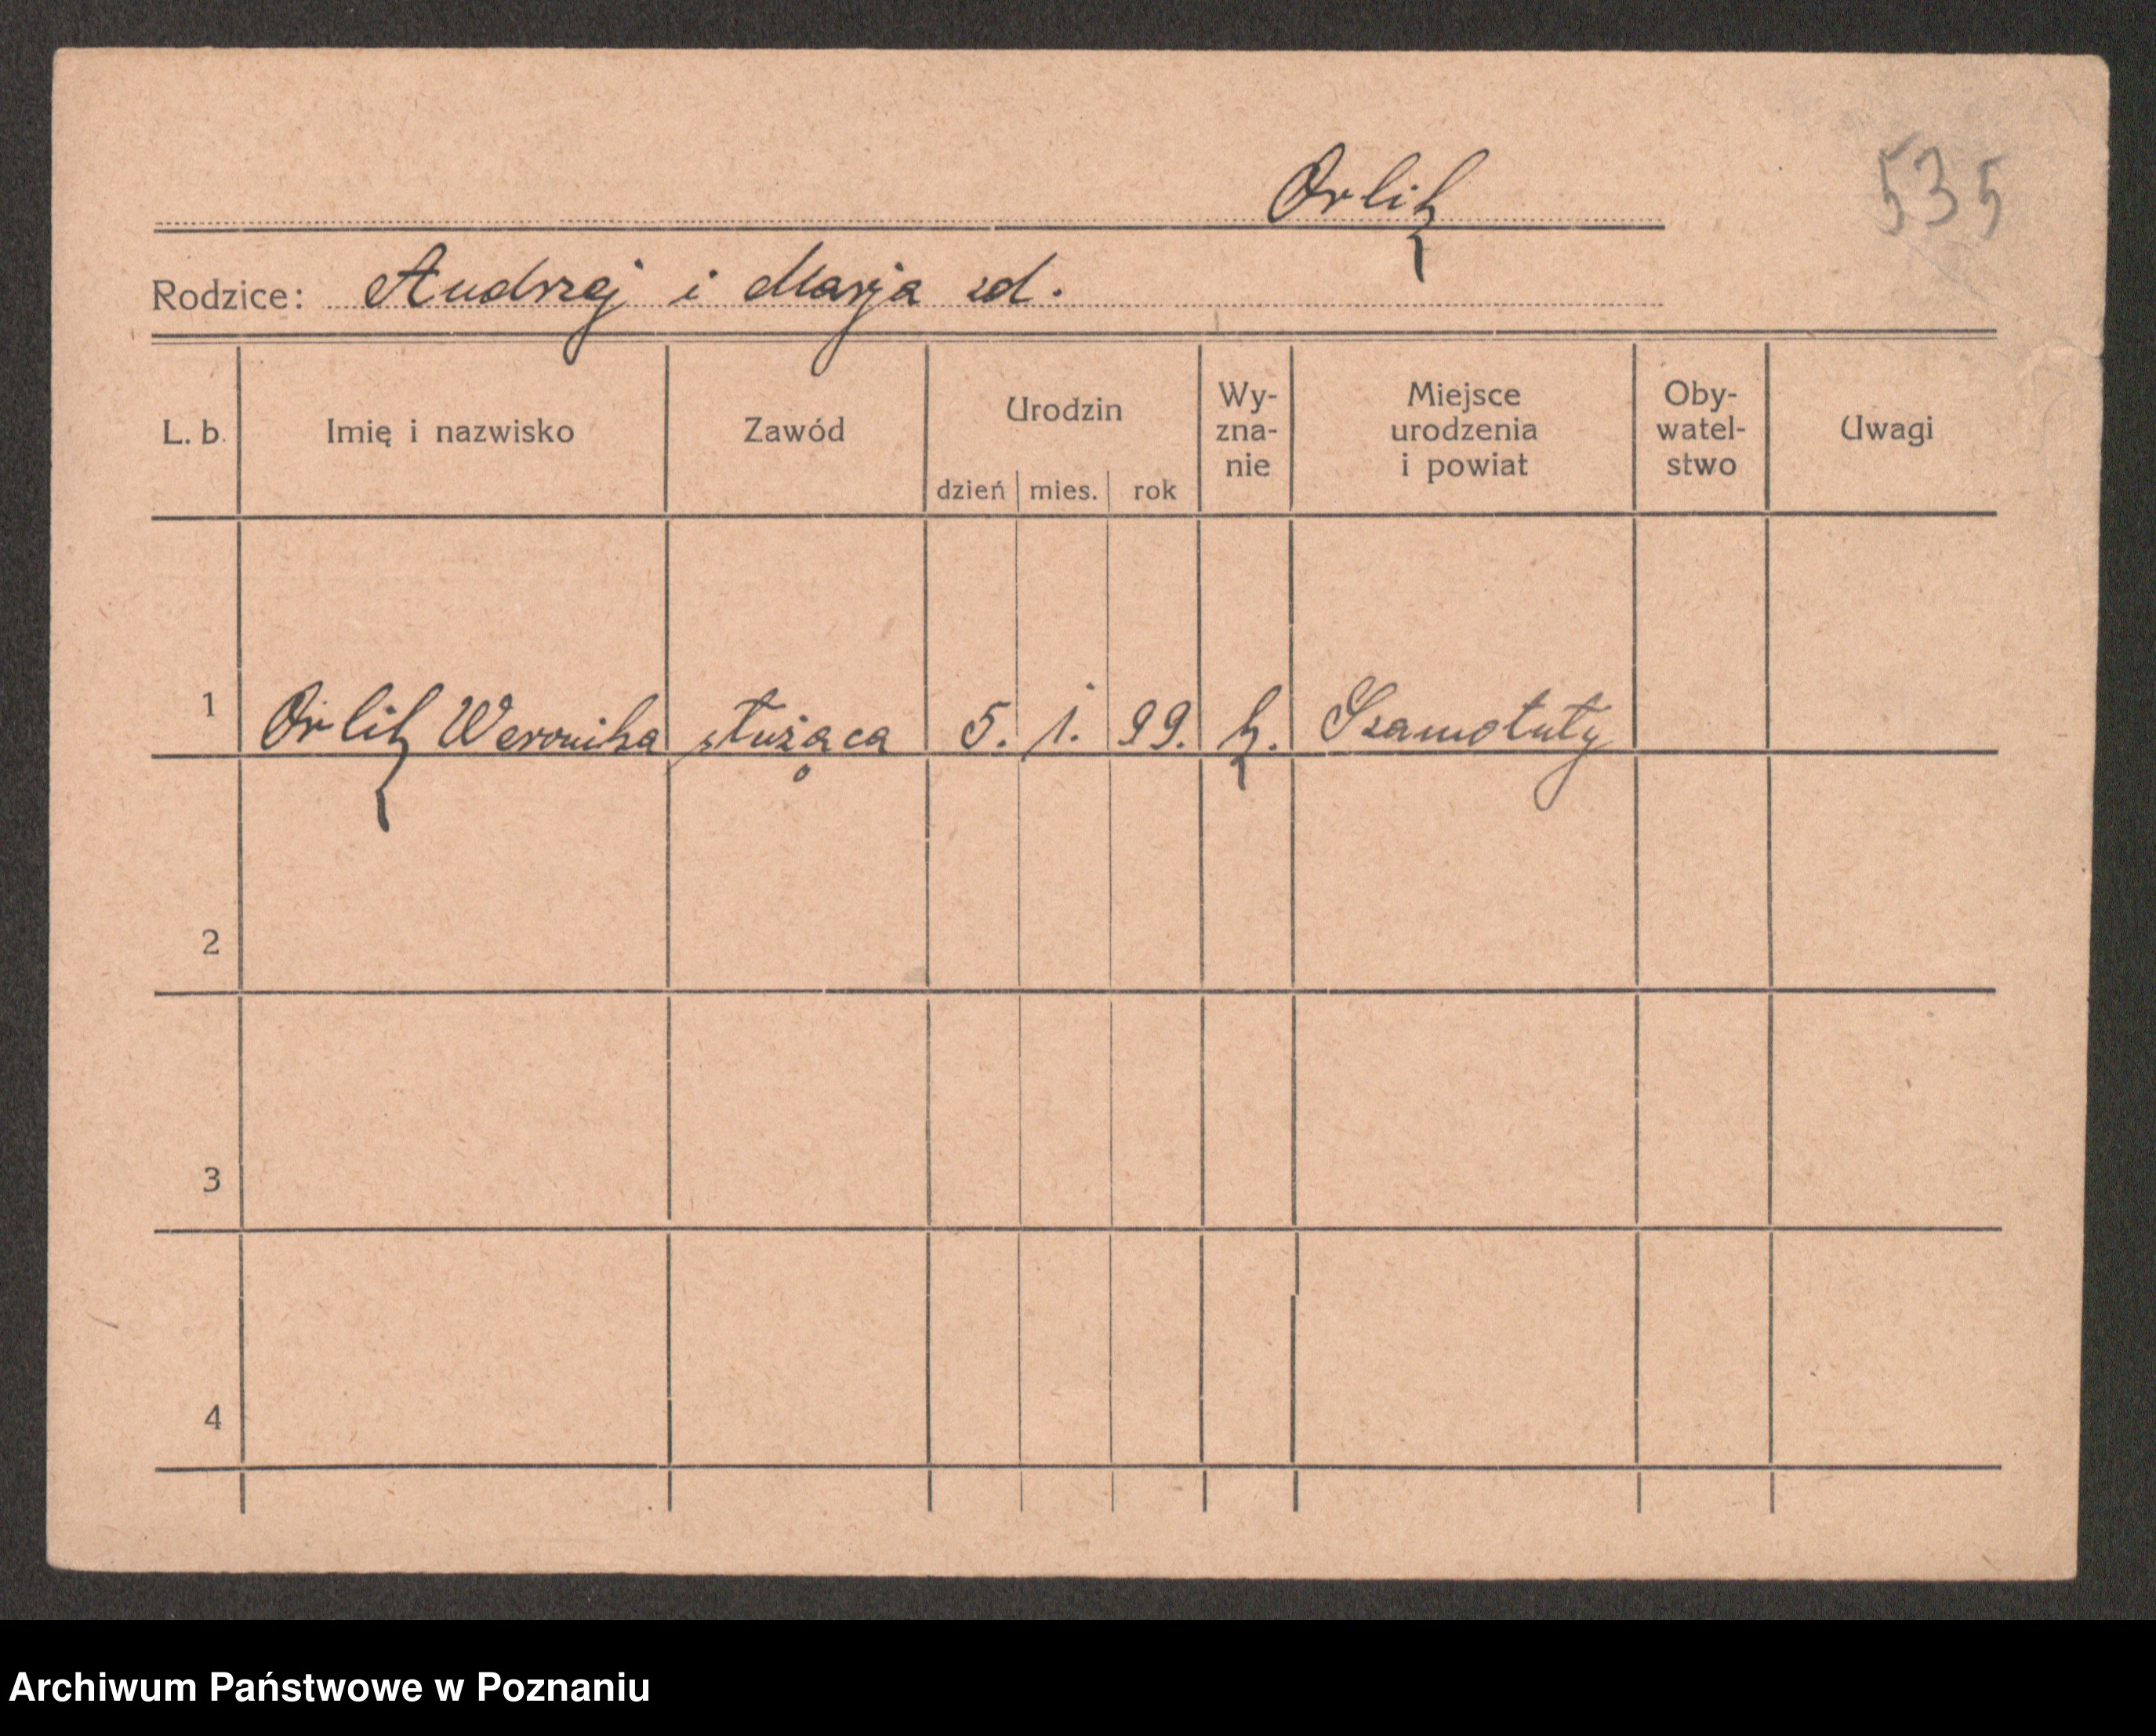 Orlik
535
Rodzice: Andrzej i Marja zd.
L. b. Imię i nazwisko Zawód Urodzin dzień mies. rok Wy-zna-nie Miejsce urodzenia i powiat Oby-watel-stwo Uwagi
1 Orlik Weronika służąca 5. 1. 99. k. Szamotuły
2
3
4
Archiwum Państwowe w Poznaniu